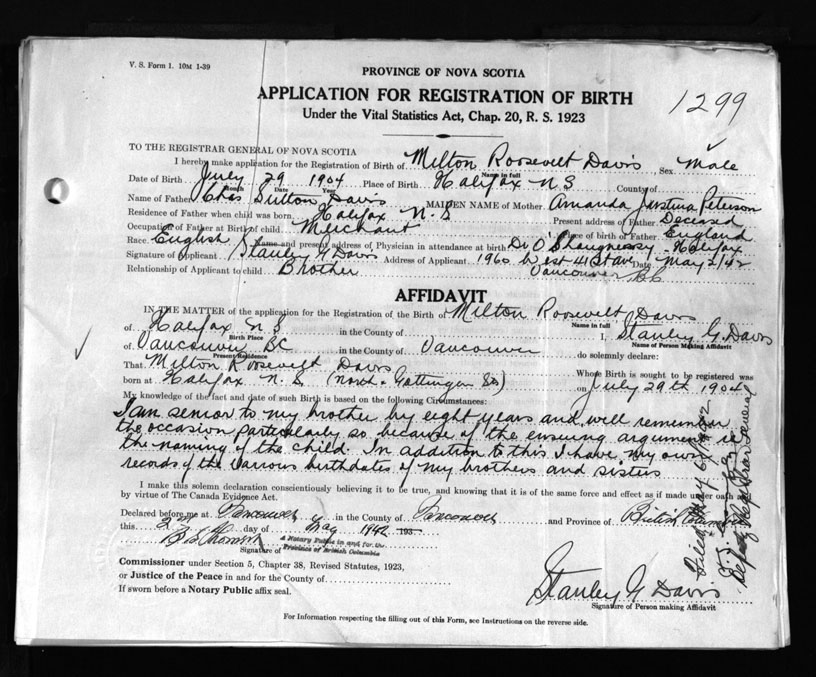 V. S. Form 1. 10M 1-39
PROVINCE OF NOVA SCOTIA
APPLICATION FOR REGISTRATION OF BIRTH
1299
Under the Vital Statistics Act, Chap. 20, R. S. 1923
TO THE REGISTRAR GENERAL OF NOVA SCOTIA
I hereby make application for the Registration of Birth of Milton Roosevelt Davis Sex Male
Name in full
Date of Birth July 29 1904 Place of Birth Halifax N S County of
Month Date Year
Name of Father Chas Sutton Davis MAIDEN NAME of Mother Amanda Justina Peterson
Residence of Father when child was born Halifax N. S Present address of Father Deceased
Occupation of Father at Birth of child Merchant Place of birth of Father England
Race English Name and present address of Physician in attendance at birth Dr O'Shaugnessy - Halifax
Signature of Applicant Stanley G Davis Address of Applicant 1960 West 41st Ave Date May 2/42
Relationship of Applicant to child Brother Vancouver BC
AFFIDAVIT
IN THE MATTER of the application for the Registration of the Birth of Milton Roosevelt Davis
Name in full
of Halifax N S in the County of I, Stanley G. Davis
Birth Place Name of Person Making Affidavit
of Vancouver BC in the County of Vancouver do solemnly declare:
Present Residence
That Milton Roosevelt Davis Whose Birth is sought to be registered was
born at Halifax N. S. (North & Gottingen Sts) on July 29th 1904
My knowledge of the fact and date of such Birth is based on the following Circumstances:
I am senior to my brother by eight years and will remember
the occasion particularly so, because of the ensuing argument re
the naming of the child. In addition to this I have my own
records of the various birthdates of my brothers and sisters
I make this solemn declaration conscientiously believing it to be true, and knowing that it is of the same force and effect as if made under oath and
by virtue of The Canada Evidence Act.
Declared before me at Vancouver in the County of Vancouver and Province of British Columbia
this 2nd day of May 1942 193
A Notary Public in and for the
Province of British Columbia
Signature of
Commissioner under Section 5, Chapter 38, Revised Statutes, 1923,
or Justice of the Peace in and for the County of
If sworn before a Notary Public affix seal.
Stanley G Davis
Signature of Person making Affidavit
For Information respecting the filling out of this Form, see Instructions on the reverse side.
Filed May 6 1942
Deputy Registrar General